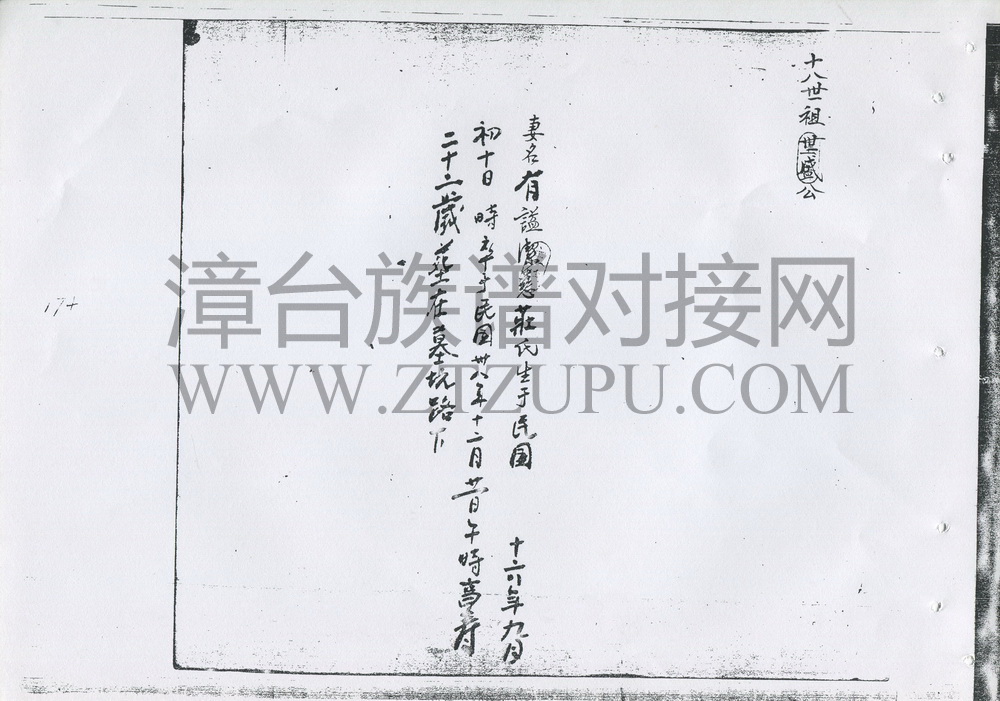 十八世祖世盛公
妻名有謚潔慈莊氏生于民國 十六年九月
初十日 時卒于民国卅八年十二月廿日午時高寿
二十二歲葬在墓坑路下
174
漳台族谱对接网
WWW.ZTZUPU.COM